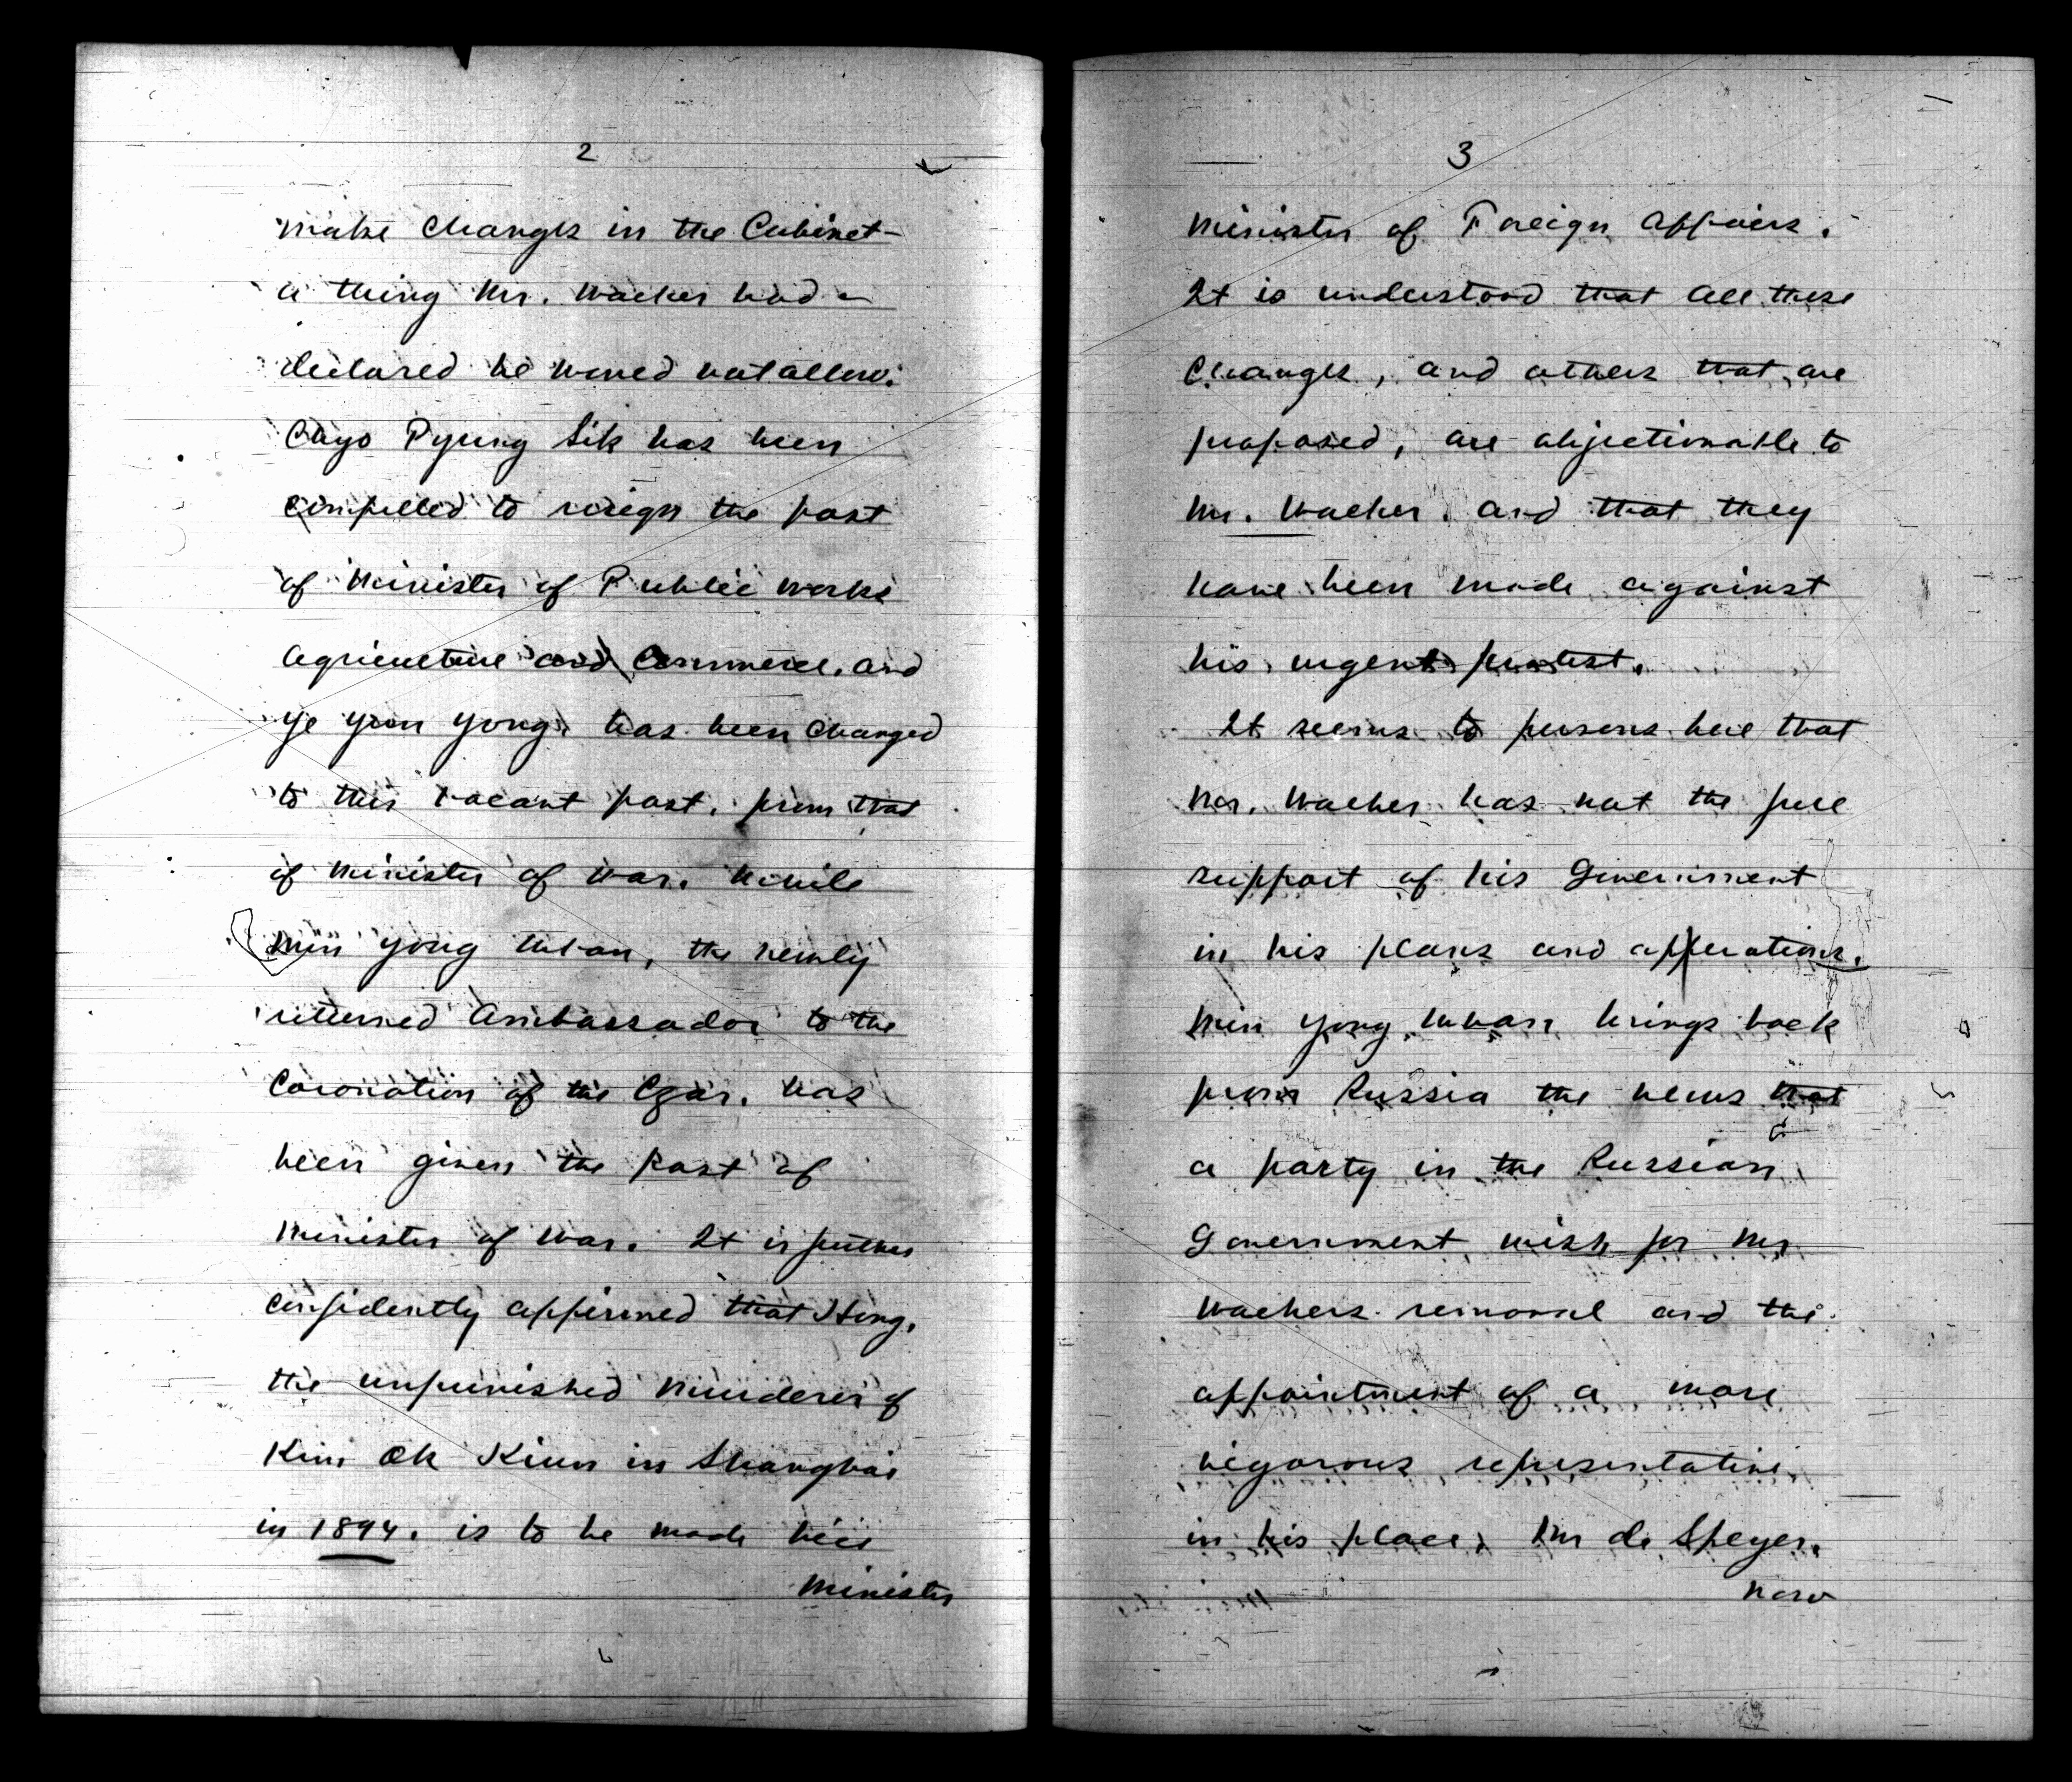 2
make changes in the Cabinet-
a thing Mr. Waeber had
declared he would not allow.
Choyo Pyung Sik has been
compelled to resign the post
of Minister of Public Works
Agriculture and Commerce, and
Ye Yun Yong, has been changed
to this vacant post, from that
of Minister of War. While
Min Yong Whan, the newly
returned Ambassador to the
Coronation of the Czar, has
been given the post of
Minister of War. It is further
confidently affirmed that Hong,
the unpunished murderer of
Kim Ok Kiun in Shanghai
in 1894, is to be made
Minister
3
Minister of Foreign Affairs.
It is understood that all these
changes, and others that are
proposed, are objectionable to
Mr. Waeber, and that they
have been made against
his urgent protest.
It seems to persons here that
Mr. Waeber has not the full
support of his Government
in his plans and opperations.
Min Yong Whan brings back
from Russia the news that
a party in the Russian
Government wish for Mr
Waebers removal and the
appointment of a more
vigorous representative
in his place, Mr de Speyer,
now